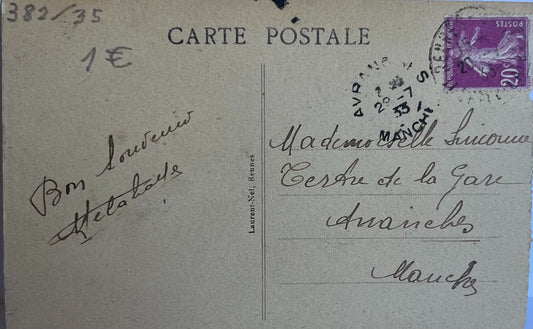 382/35
1 €
CARTE POSTALE
POSTES
20c
AVRANCHES
28-7
33
MANCHE
Bon Souvenir
Delahaye
Laurent-Nel, Rennes
Mademoiselle Simonne
Tertre de la Gare
Avranches
Manche